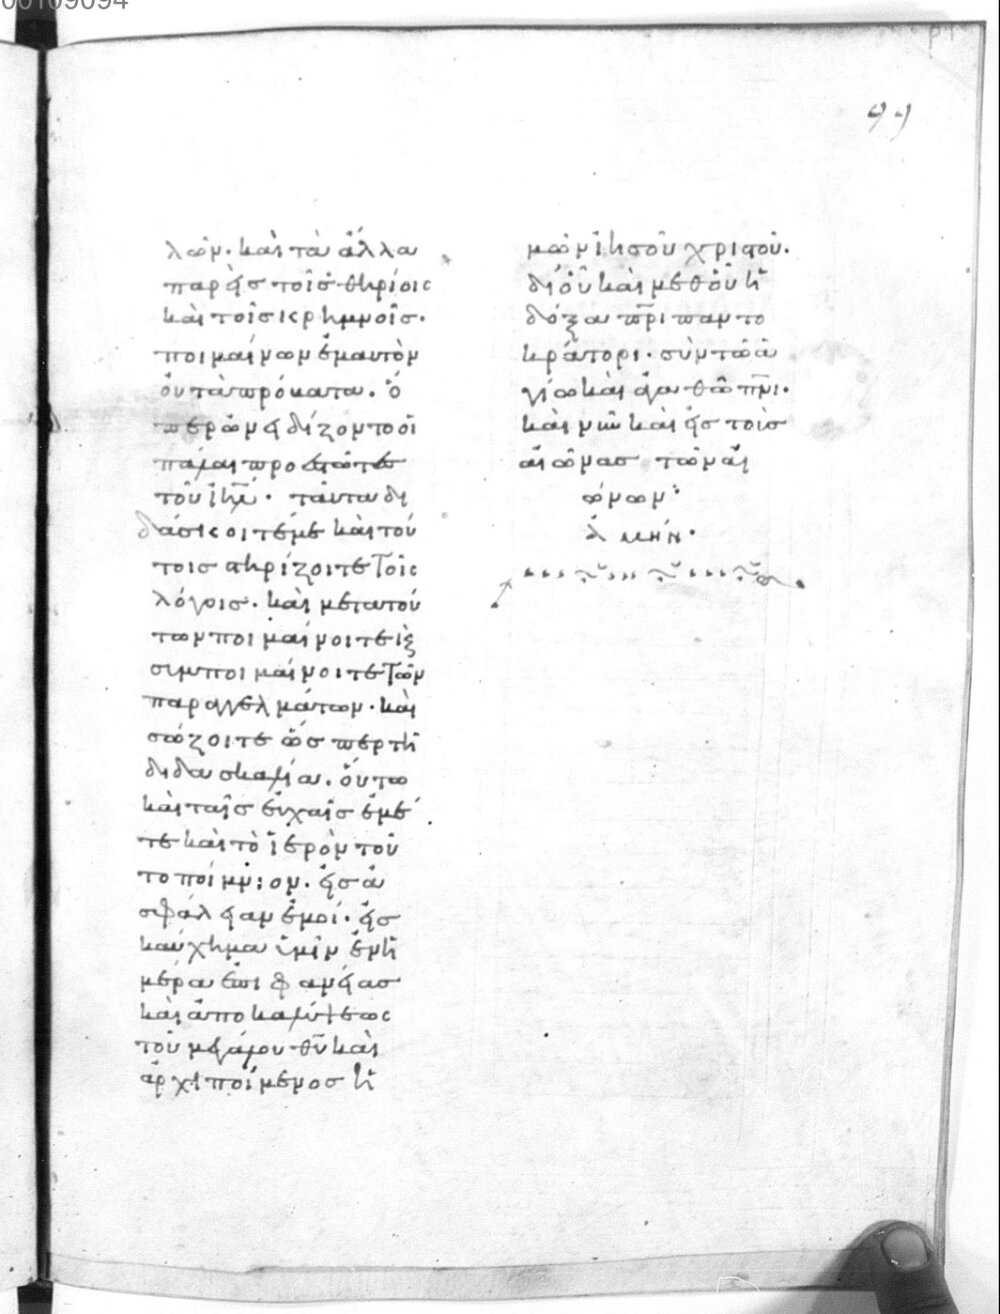 00109094
99
λῶν. καὶ τὰ ἄλλα
παρεὶς τοῖς θηρίοις
καὶ τοῖς κρημνοῖς.
ποιμαίνων ἐμαυτὸν
οὐ τὰ πρόβατα. ὅ
περ ὠνειδίζοντο οἱ
πάλαι προεστῶτες
τοῦ ἰηλ. ταῦτα δι
δάσκοιτέ με καὶ τού
τοις στηρίζοιτε τοῖς
λόγοις. καὶ μετὰ τού
των ποιμαίνοιτε ἐξ
συμποιμαίνοιτε τῶν
παραγγελμάτων. καὶ
σώζοιτε ὥσπερ τῆ
διδασκαλία. οὕτω
καὶ ταῖς εὐχαῖς ἐμέ
τε καὶ τὸ ἱερὸν τοῦ
το ποίμνιον. εἰς ἀ
σφάλειαν ἐμοί. εἰς
καύχημα ὑμῖν ἐν ἡ
μέρα ἐπιφανείας
καὶ ἀποκαλύψεως
τοῦ μεγάλου θυ καὶ
ἀρχιποίμενος ἡ
μῶν ἰησοῦ χριστοῦ.
δι' οὗ καὶ μεθ' οὗ ἡ
δόξα πρι παντο
κράτορι. σὺν τῶ ἁ
γίω καὶ ἀγαθῶ πνι.
καὶ νῦν καὶ εἰς τοὺς
αἰῶνας τῶν αἰ
ώνων:
ἀμήν.